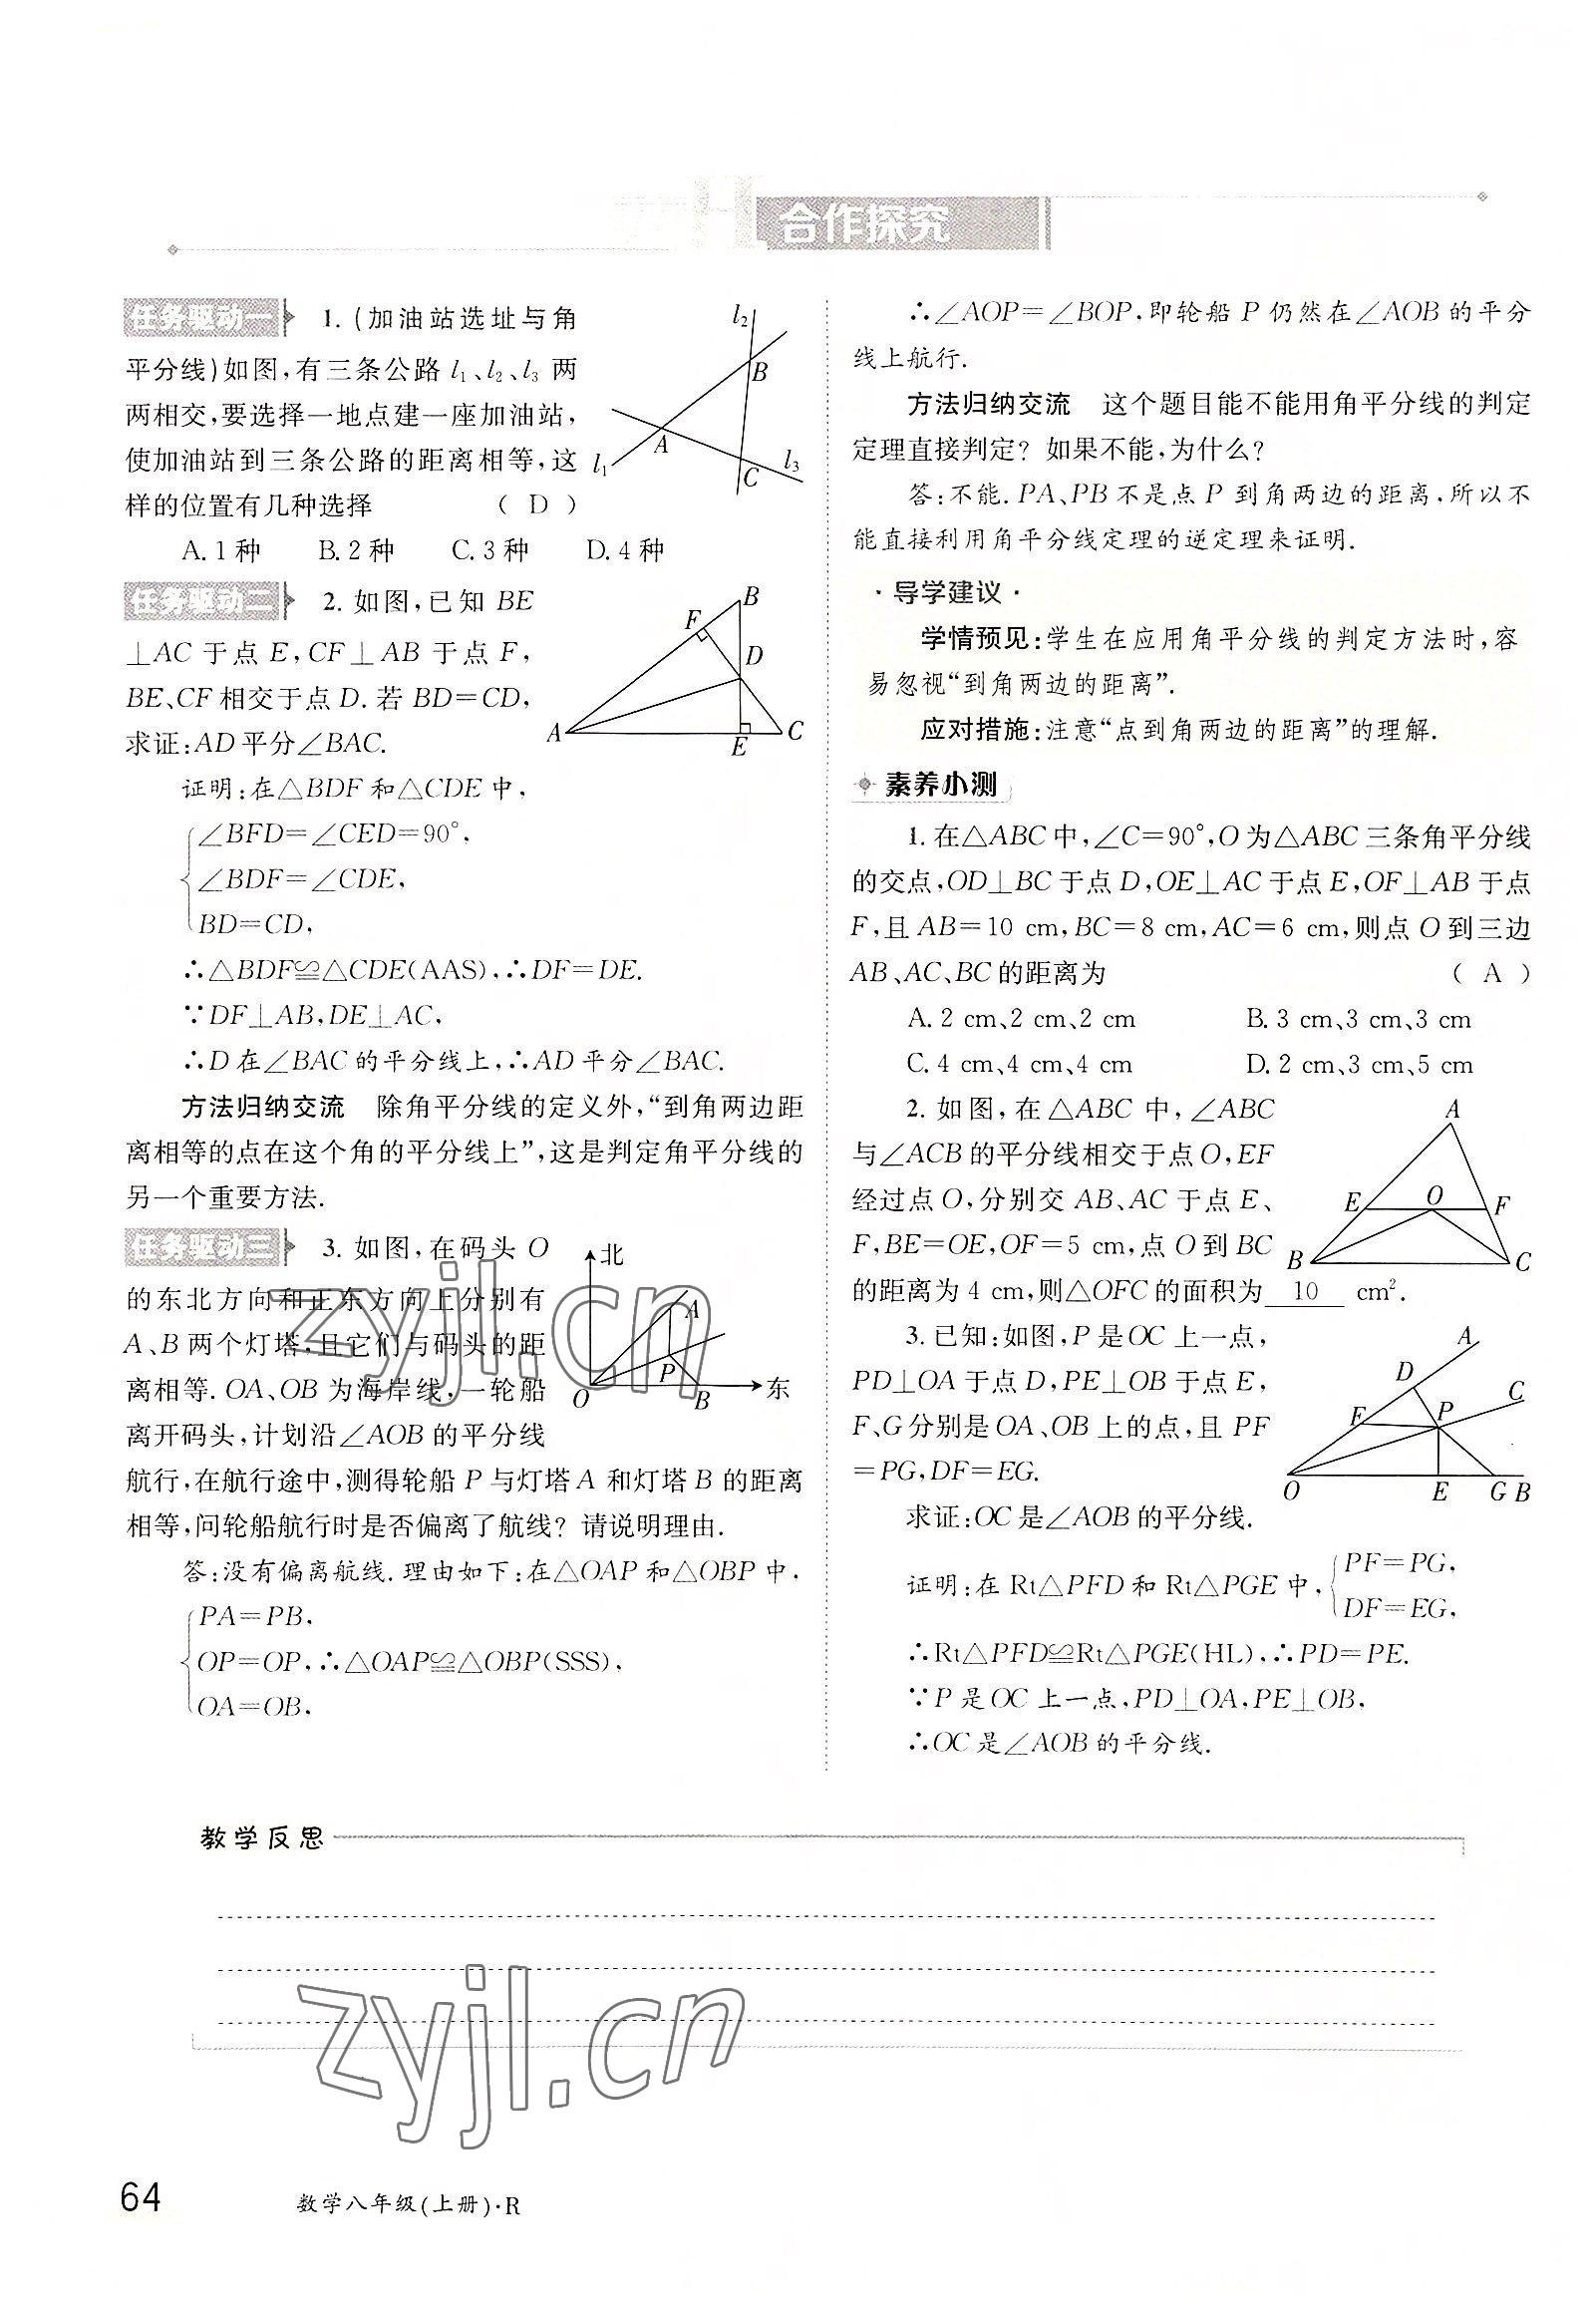 合作探究
任务驱动一 1. (加油站选址与角
平分线)如图,有三条公路 l₁、l₂、l₃ 两
两相交,要选择一地点建一座加油站,
使加油站到三条公路的距离相等,这
样的位置有几种选择 ( D )
A. 1 种 B. 2 种 C. 3 种 D. 4 种
l₂
B
A
l₁
C
l₃
任务驱动二 2. 如图,已知 BE
⊥AC 于点 E,CF⊥AB 于点 F,
BE、CF 相交于点 D. 若 BD=CD,
求证:AD 平分∠BAC.
B
F
D
A
E
C
证明:在△BDF 和△CDE 中,
∠BFD=∠CED=90°,
∠BDF=∠CDE,
BD=CD,
∴△BDF≌△CDE(AAS),∴DF=DE.
∵DF⊥AB,DE⊥AC,
∴D 在∠BAC 的平分线上,∴AD 平分∠BAC.
方法归纳交流 除角平分线的定义外,“到角两边距
离相等的点在这个角的平分线上”,这是判定角平分线的
另一个重要方法.
任务驱动三 3. 如图,在码头 O
的东北方向和正东方向上分别有
A、B 两个灯塔,且它们与码头的距
离相等. OA、OB 为海岸线,一轮船
离开码头,计划沿∠AOB 的平分线
航行,在航行途中,测得轮船 P 与灯塔 A 和灯塔 B 的距离
相等,问轮船航行时是否偏离了航线? 请说明理由.
北
A
P
O
B
东
答:没有偏离航线. 理由如下:在△OAP 和△OBP 中,
PA=PB,
OP=OP,∴△OAP≌△OBP(SSS),
OA=OB,
∴∠AOP=∠BOP,即轮船 P 仍然在∠AOB 的平分
线上航行.
方法归纳交流 这个题目能不能用角平分线的判定
定理直接判定? 如果不能,为什么?
答:不能. PA、PB 不是点 P 到角两边的距离,所以不
能直接利用角平分线定理的逆定理来证明.
·导学建议·
学情预见:学生在应用角平分线的判定方法时,容
易忽视“到角两边的距离”.
应对措施:注意“点到角两边的距离”的理解.
素养小测
1. 在△ABC 中,∠C=90°,O 为△ABC 三条角平分线
的交点,OD⊥BC 于点 D,OE⊥AC 于点 E,OF⊥AB 于点
F,且 AB=10 cm,BC=8 cm,AC=6 cm,则点 O 到三边
AB、AC、BC 的距离为 ( A )
A. 2 cm、2 cm、2 cm B. 3 cm、3 cm、3 cm
C. 4 cm、4 cm、4 cm D. 2 cm、3 cm、5 cm
2. 如图,在△ABC 中,∠ABC
与∠ACB 的平分线相交于点 O,EF
经过点 O,分别交 AB、AC 于点 E、
F,BE=OE,OF=5 cm,点 O 到 BC
的距离为 4 cm,则△OFC 的面积为 10 cm².
A
E
O
F
B
C
3. 已知:如图,P 是 OC 上一点,
PD⊥OA 于点 D,PE⊥OB 于点 E,
F、G 分别是 OA、OB 上的点,且 PF
=PG,DF=EG.
A
D
C
F
P
O
E
G
B
求证:OC 是∠AOB 的平分线.
证明:在 Rt△PFD 和 Rt△PGE 中,
PF=PG,
DF=EG,
∴Rt△PFD≌Rt△PGE(HL),∴PD=PE.
∵P 是 OC 上一点,PD⊥OA,PE⊥OB,
∴OC 是∠AOB 的平分线.
教学反思
zyjl.cn
zyjl.cn
64
数学八年级(上册)·R